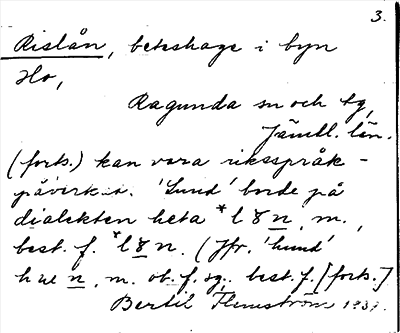 3.
Rislån, beteshage i byn
Ho,
Ragunda sn och tg,
Jämtl. län.
(forts.) kan vara riksspråk-
påverkat. 'Lund' borde på
dialekten heta *l8n, m.,
best. f. *l8n. (Jfr. 'hund'
hu n, m. ob. f. sg. best. f. [forts.]
Bertil Flemström 1937.